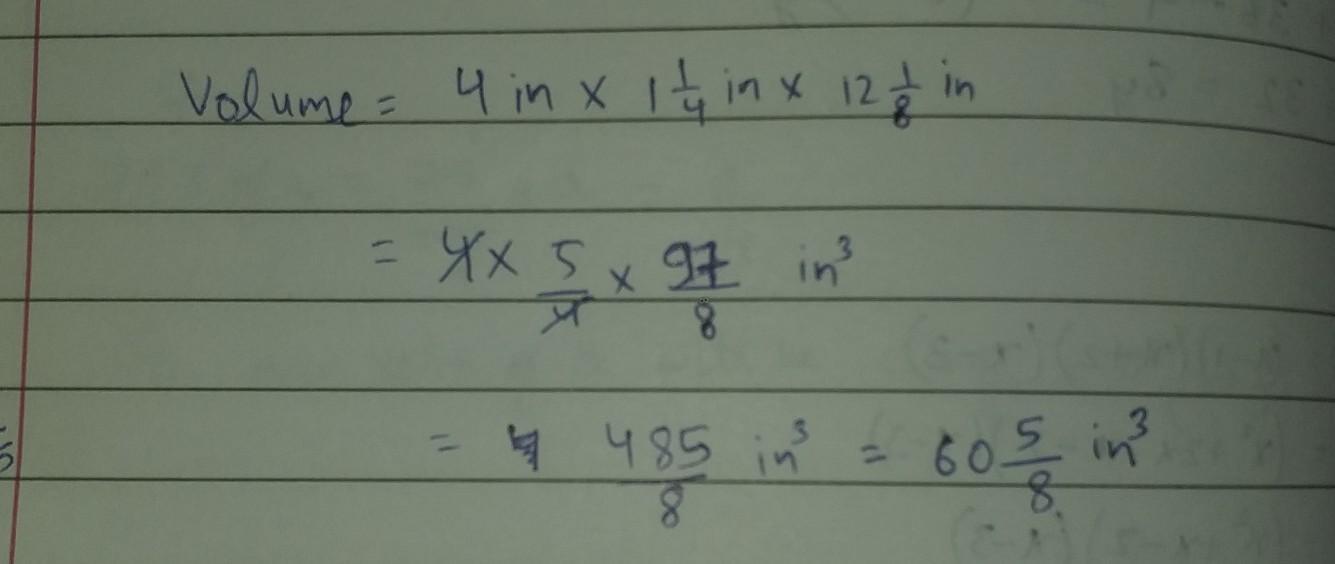 Volume = 4 in x 1 1/4 in x 12 1/8 in
= 4 x 5/4 x 97/8 in³
= 485/8 in³ = 60 5/8 in³